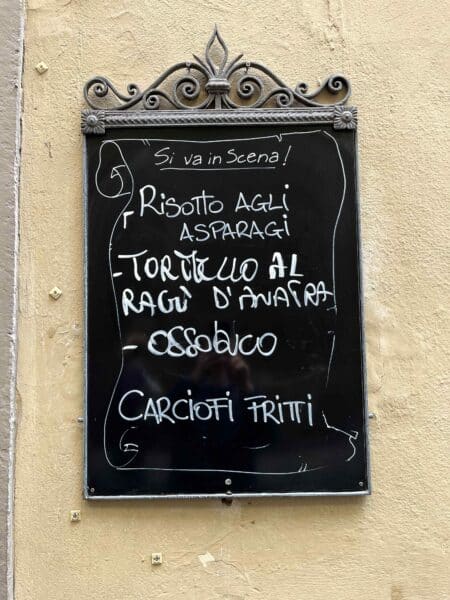 Si va in Scena!
Risotto AGLI
ASPARAGI
- TORTELLO AL
RAGÙ D'ANATRA
- OSSOBUCO
CARCIOFI FRITTI